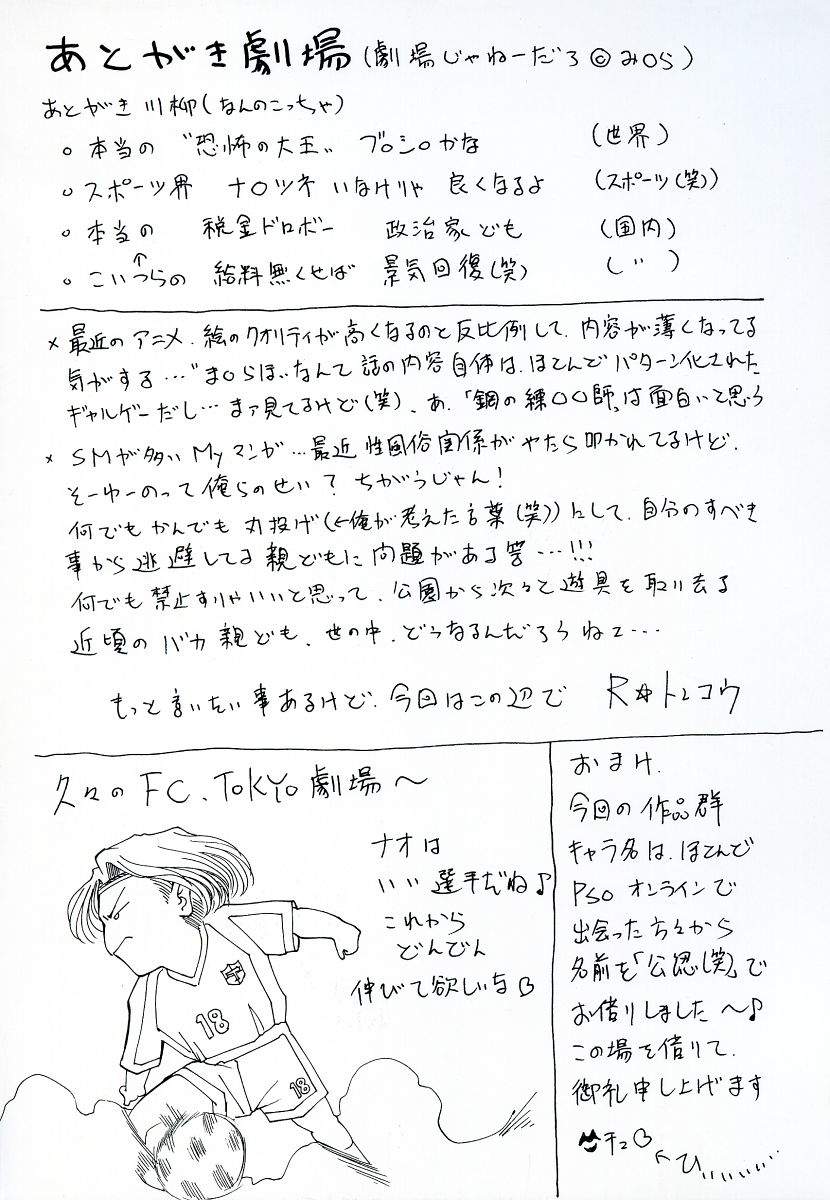 あとがき劇場(劇場じゃねーだろ©みOら)
あとがき川柳(なんのこっちゃ)
○ 本当の "恐怖の大王" ブ○シ○かな (世界)
○ スポーツ界 ナ○ツネ いなけりゃ 良くなるよ (スポーツ(笑))
○ 本当の 税金ドロボー 政治家ども (国内)
↑
○ こいつらの 給料無くせば 景気回復(笑) (〃)
× 最近のアニメ、絵のクオリティが高くなるのと反比例して、内容が薄くなってる
気がする…"ま○らほ"なんて話の内容自体は、ほとんどパターン化された
ギャルゲーだし…まァ見てるけど(笑)、あ、「鋼の練○○師」は面白いと思う
× SMが多いMyマンガ…最近性風俗関係がやたら叩かれてるけど、
そーゆーのって俺らのせい?ちがうじゃん!
何でもかんでも丸投げ(←俺が考えた言葉(笑))にして、自分のすべき
事から逃避してる親どもに問題がある筈…!!!
何でも禁止すりゃいいと思って、公園から次々と遊具を取り去る
近頃のバカ親ども、世の中、どうなるんだろうねェ…
もっと言いたい事あるけど、今回はこの辺で R☆トレコウ
久々のFC.TOKYO劇場〜
ナオは
いい選手だね♪
これから
どんどん
伸びて欲しいな
18
18
おまけ.
今回の作品群
キャラ名は、ほとんど
PSOオンラインで
出会った方々から
名前を「公認(笑)」で
お借りしました〜♪
この場を借りて、
御礼申し上げます